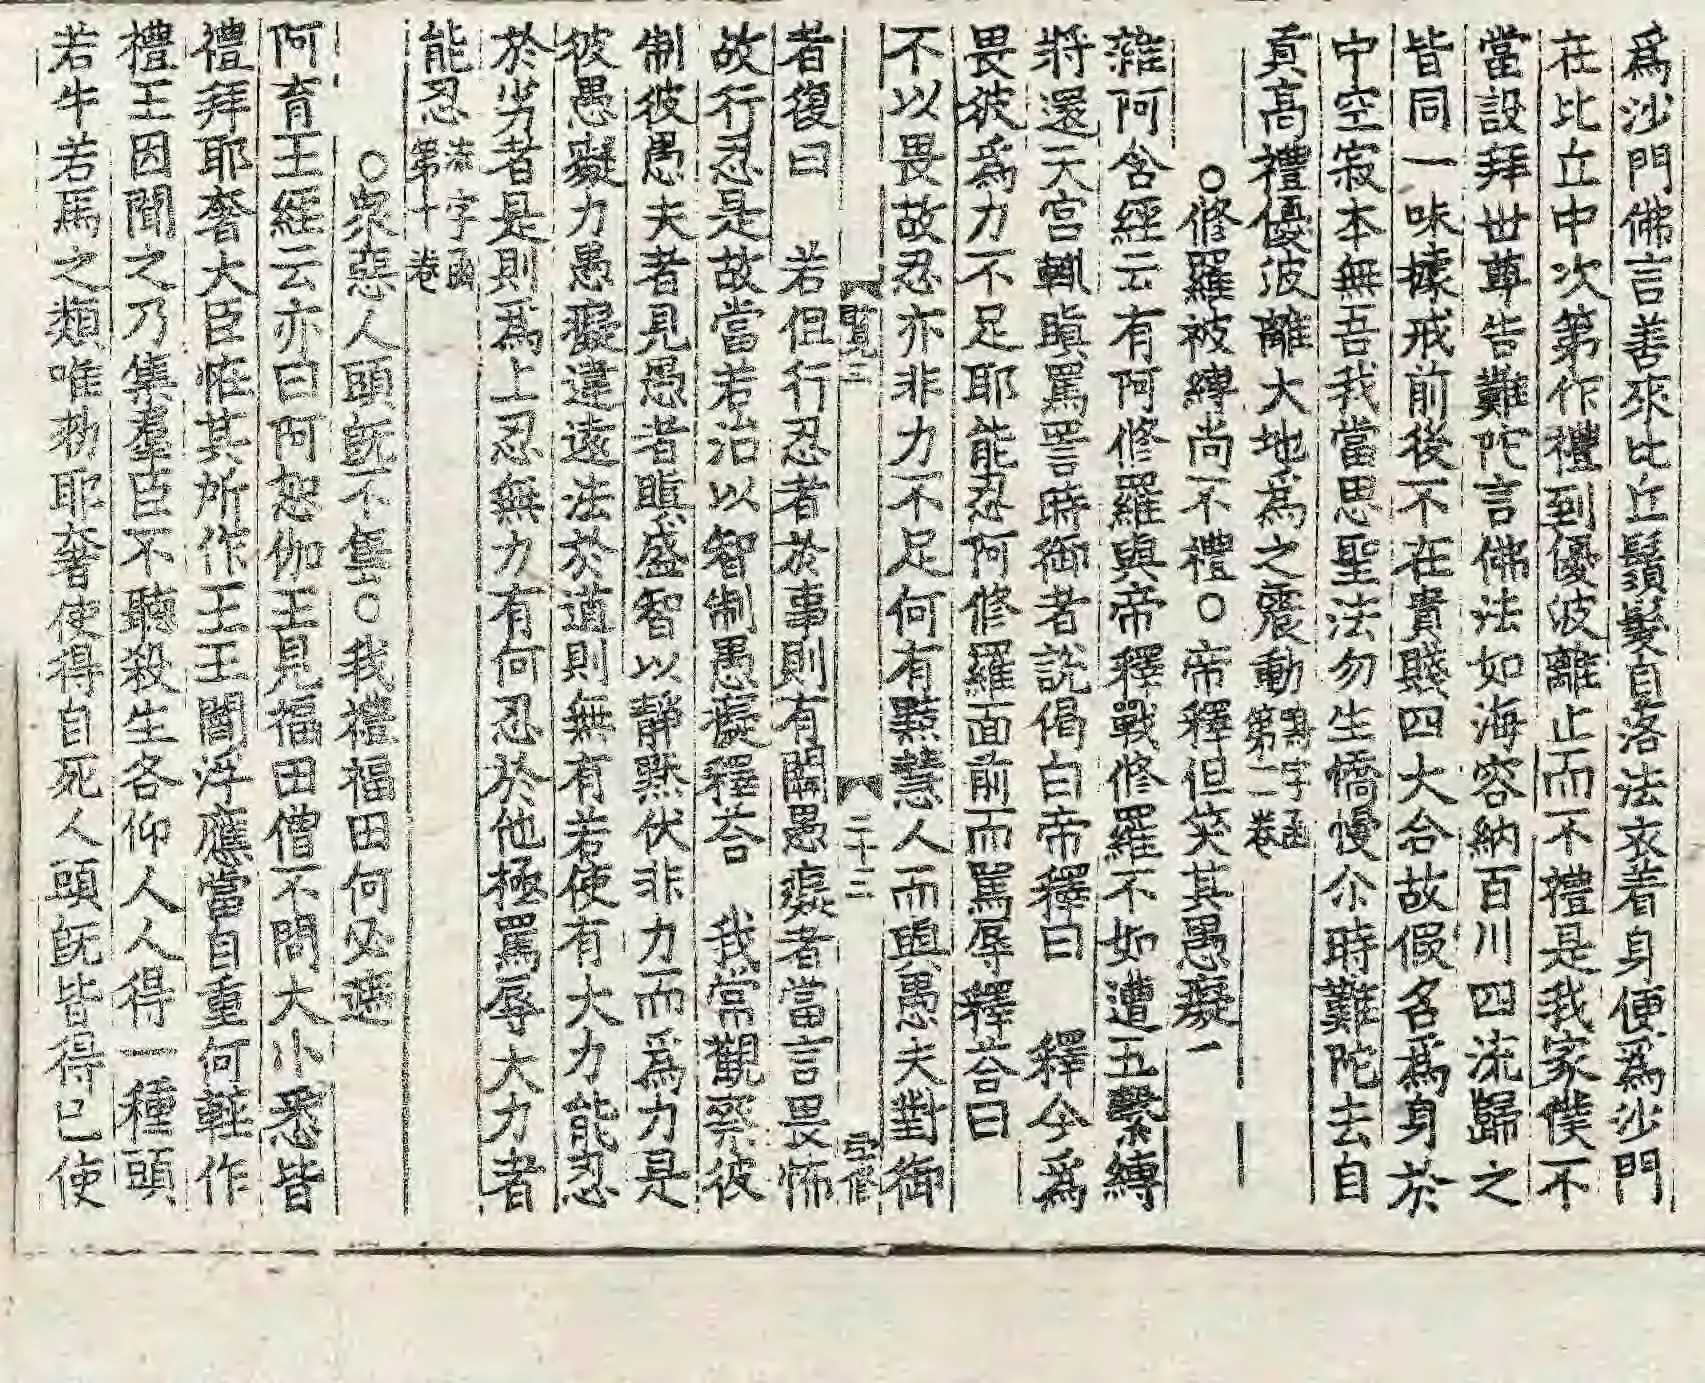 爲沙門佛言善來比丘鬚髮自落法衣著身便爲沙門
在比丘中次第作禮到優波離止而不禮是我家僕不
當設拜世尊告難陀言佛法如海容納百川四流歸之
皆同一味據戒前後不在貴賤四大合故假名爲身於
中空寂本無吾我當思聖法勿生憍慢尒時難陀去自
眞高禮優波離大地爲之震動 第二卷
○修羅被縛尚不禮○帝釋但笑其愚癡一
雜阿含經云有阿修羅與帝釋戰修羅不如遭五繫縛
將還天宮輒瞋罵詈時御者說偈白帝釋曰 釋今爲
畏彼爲力不足耶能忍阿修羅面前而罵辱釋荅曰
不以畏故忍亦非力不足何有黠慧人而與愚夫對御
二十三
者復曰 若但行忍者於事則有闕愚癡者當言畏怖
故行忍是故當若治以智制愚癡釋荅 我常觀察彼
制彼愚夫者見愚者瞋盛智以靜默伏非力而爲力是
彼愚癡力愚癡違遠法於道則無有若使有大力能忍
於劣者是則爲上忍無力有何忍於他極罵辱大力者
能忍 流字函第十卷
○衆惡人頭旣不售○我禮福田何必遮
阿育王經云亦曰阿恕伽王見福田僧不問大小悉皆
禮拜耶奢大臣恠其所作王王閻浮應當自重何輕作
禮王因聞之乃集羣臣不聽殺生各仰人人得一種頭
若牛若馬之類唯勑耶奢使得自死人頭旣皆得已使